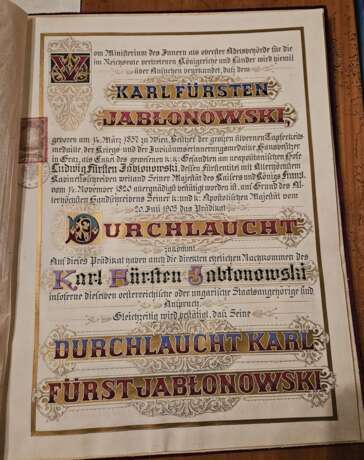 Vom Ministerium des Innern als oberster Adelsbehörde für die
im Reichsrate vertretenen Königreiche und Länder wird hiemit
über Ansuchen beurkundet, daß dem
KARL FÜRSTEN
JABŁONOWSKI,
geboren am 14. März 1857 in Wien, Besitzer der großen silbernen Tapferkeits-
medaille, der Kriegs- und der Jubiläumserinnerungsmedaille, Hausbesitzer
in Graz, als Enkel des gewesenen k. k. Gesandten am neapolitanischen Hofe
Ludwig Fürsten Jabłonowski, dessen Fürstenstand mit Allerhöchstem
Kabinettschreiben weiland Seiner Majestät des Kaisers und Königs Franz I.
vom 14. November 1820 allergnädigst bestätigt worden ist, auf Grund des Al-
lerhöchsten Handschreibens Seiner k. und k. Apostolischen Majestät vom
20. Juni 1905 das Prädikat
DURCHLAUCHT
zukommt.
Auf dieses Prädikat haben auch die direkten ehelichen Nachkommen des
Karl Fürsten Jabłonowski
insoferne dieselben oesterreichische oder ungarische Staatsangehörige sind
Anspruch.
Gleichzeitig wird bestätigt, daß Seine
DURCHLAUCHT KARL
FÜRST JABŁONOWSKI